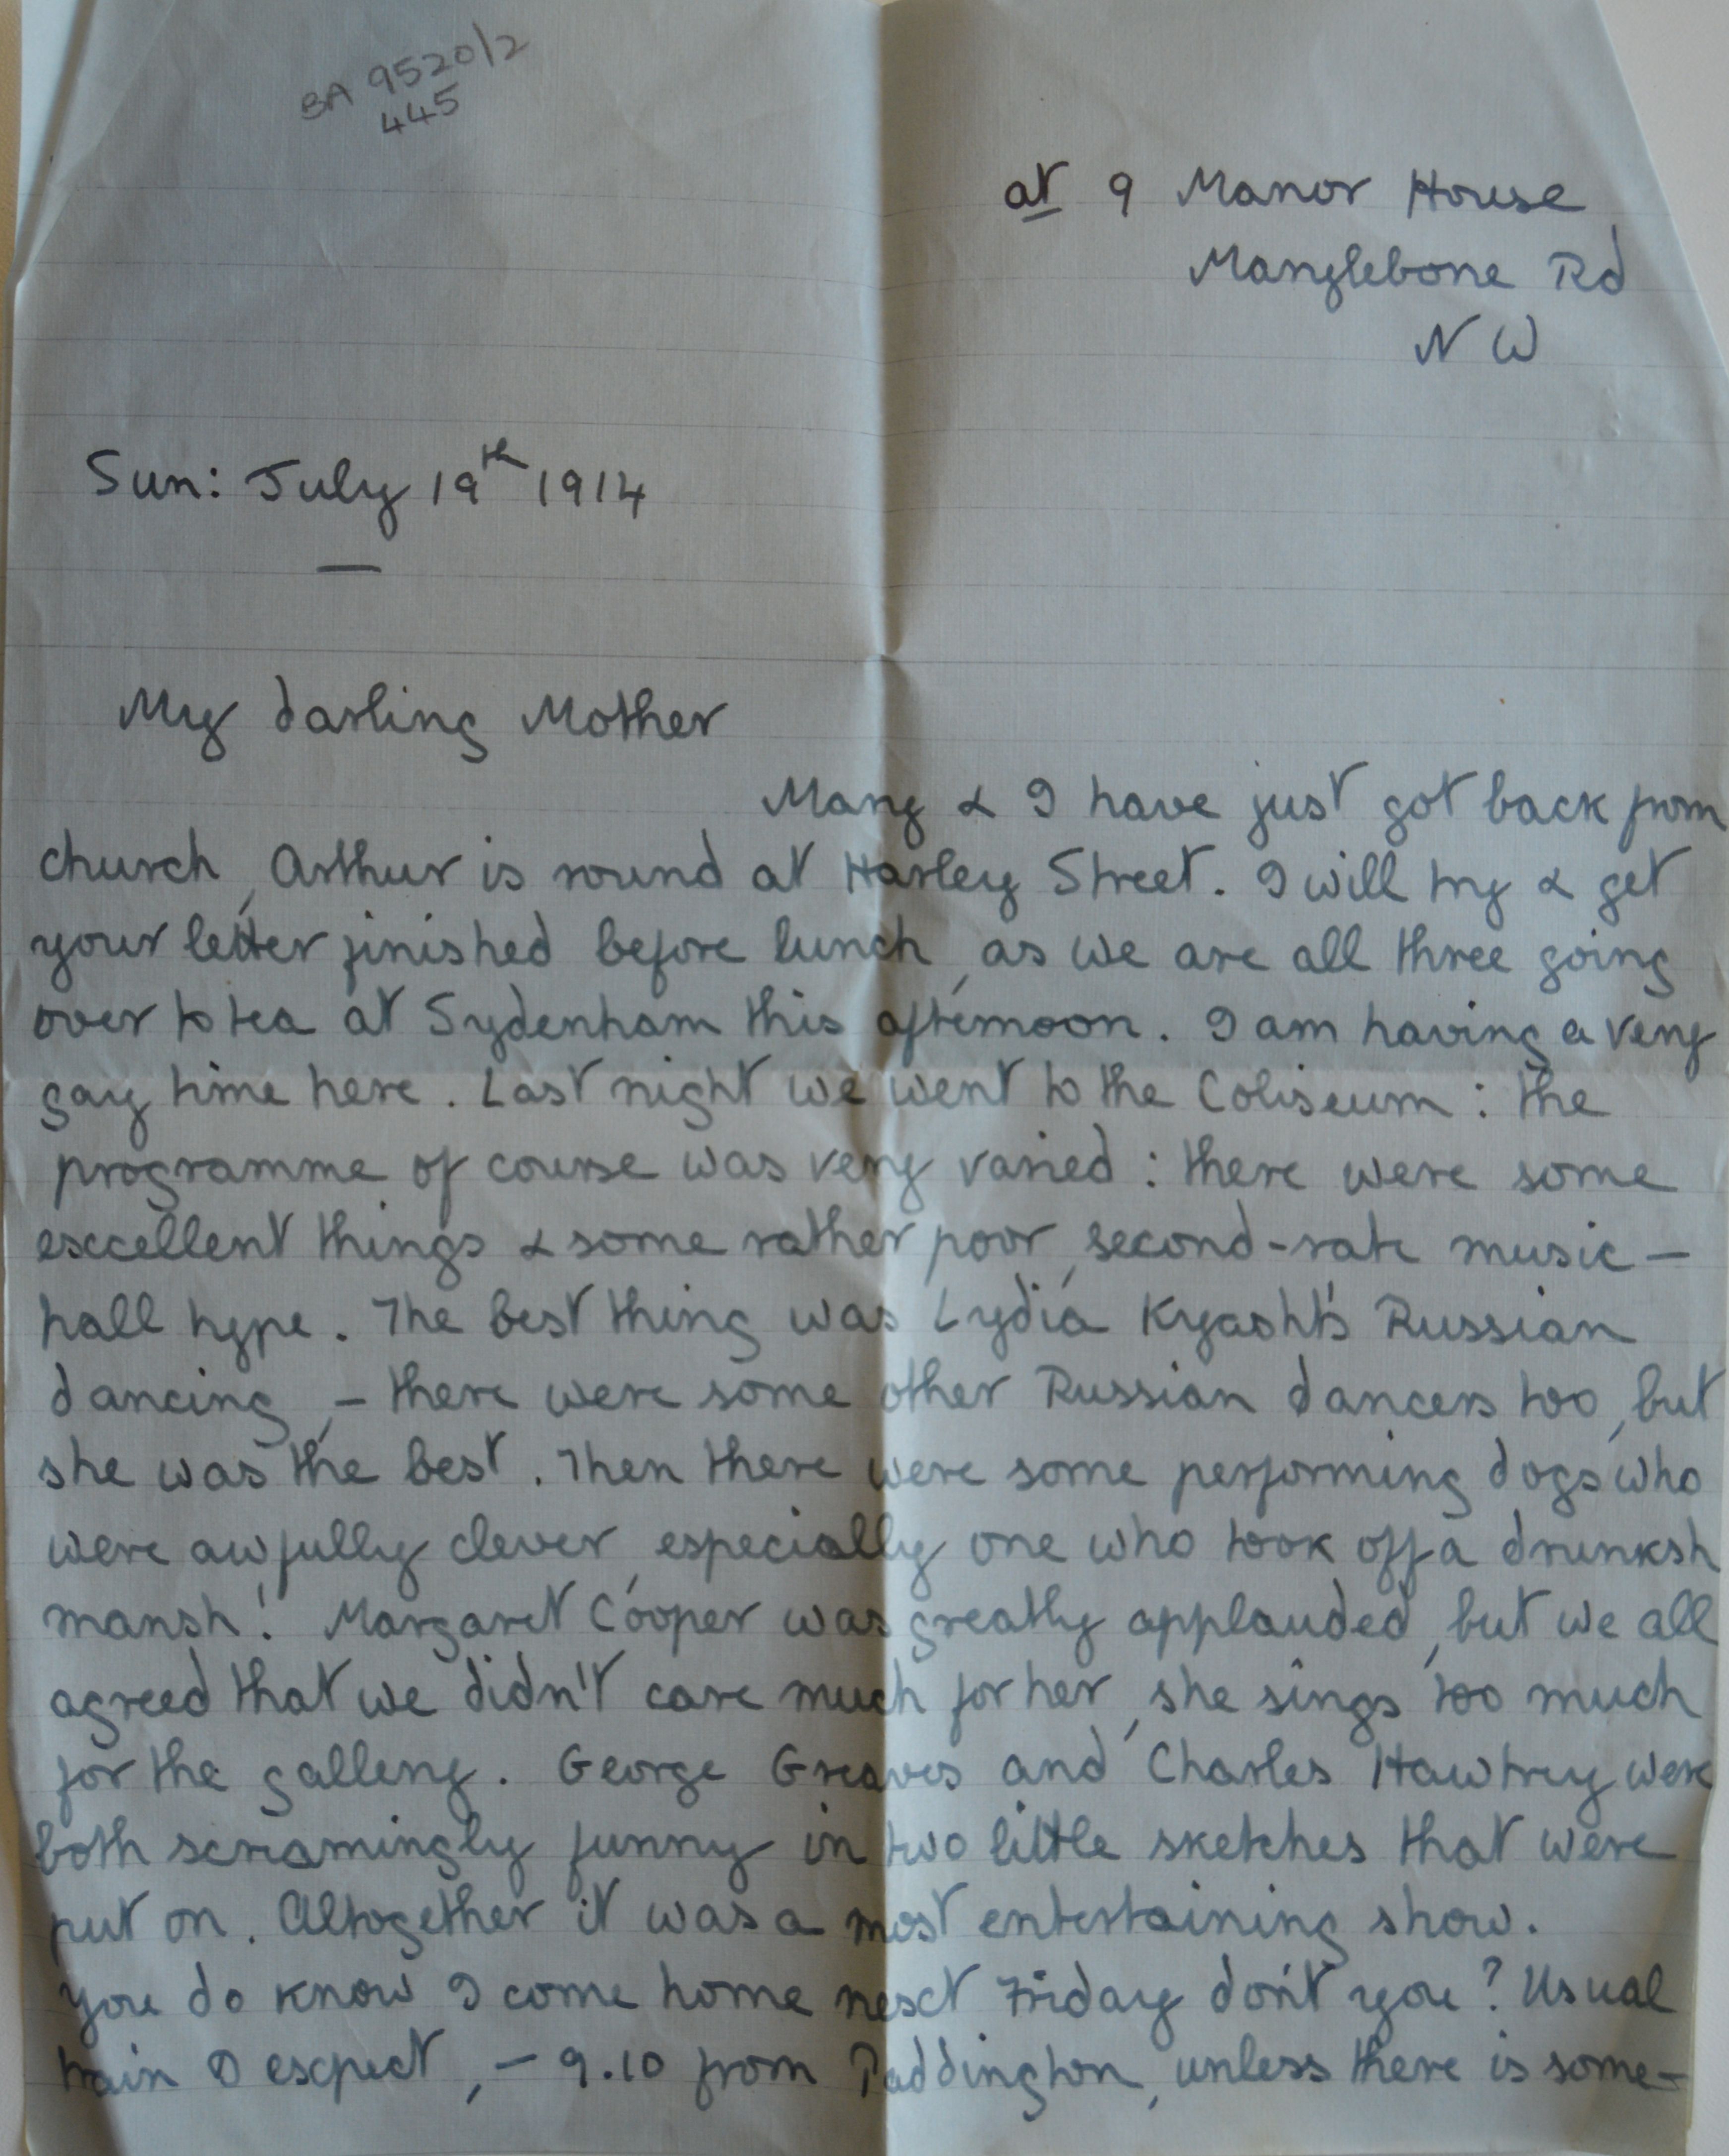 BA 9520/2
445
at 9 Manor House
Marylebone Rd
N W
Sun: July 19th 1914
My darling Mother
Mary & I have just got back from
church, Arthur is round at Harley Street. I will try & get
your letter finished before lunch, as we are all three going
over to tea at Sydenham this afternoon. I am having a very
gay time here. Last night we went to the Coliseum: the
programme of course was very varied: there were some
excellent things & some rather poor, second-rate music-
hall type. The best thing was Lydia Kyasht's Russian
dancing, - there were some other Russian dancers too, but
she was the best. Then there were some performing dogs who
were awfully clever, especially one who took off a drunksh
mansh! Margaret Cooper was greatly applauded, but we all
agreed that we didn't care much for her, she sings too much
for the gallery. George Greaves and Charles Hawtrey were
both screamingly funny in two little sketches that were
put on. Altogether it was a most entertaining show.
You do know I come home next Friday don't you? Usual
train I expect, - 9.10 from Paddington, unless there is some-